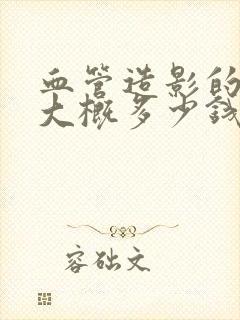 血管造影的
大概多少钱
容础文